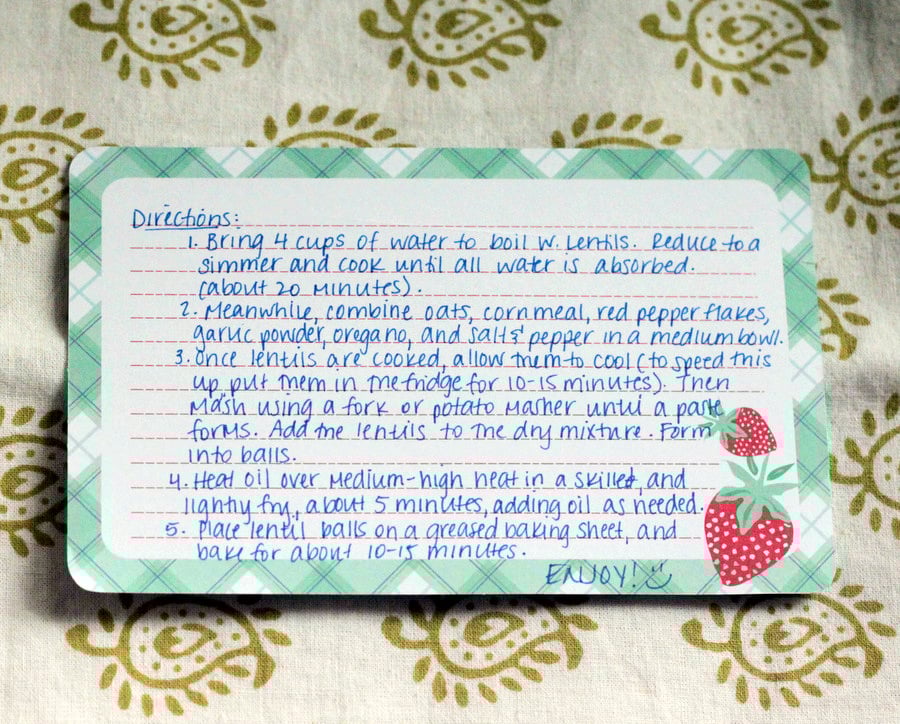 Directions:
1. Bring 4 cups of water to boil w. Lentils. Reduce to a
simmer and cook until all water is absorbed.
(about 20 minutes).
2. Meanwhile, combine oats, cornmeal, red pepper flakes,
garlic powder, oregano, and salt & pepper in a medium bowl.
3. Once lentils are cooked, allow them to cool (to speed this
up, put them in the fridge for 10-15 minutes). Then
mash using a fork or potato masher until a paste
forms. Add the lentils to the dry mixture. Form
into balls.
4. Heat oil over medium-high heat in a skillet, and
lightly fry, about 5 minutes, adding oil as needed.
5. Place lentil balls on a greased baking sheet, and
bake for about 10-15 minutes.
ENJOY!